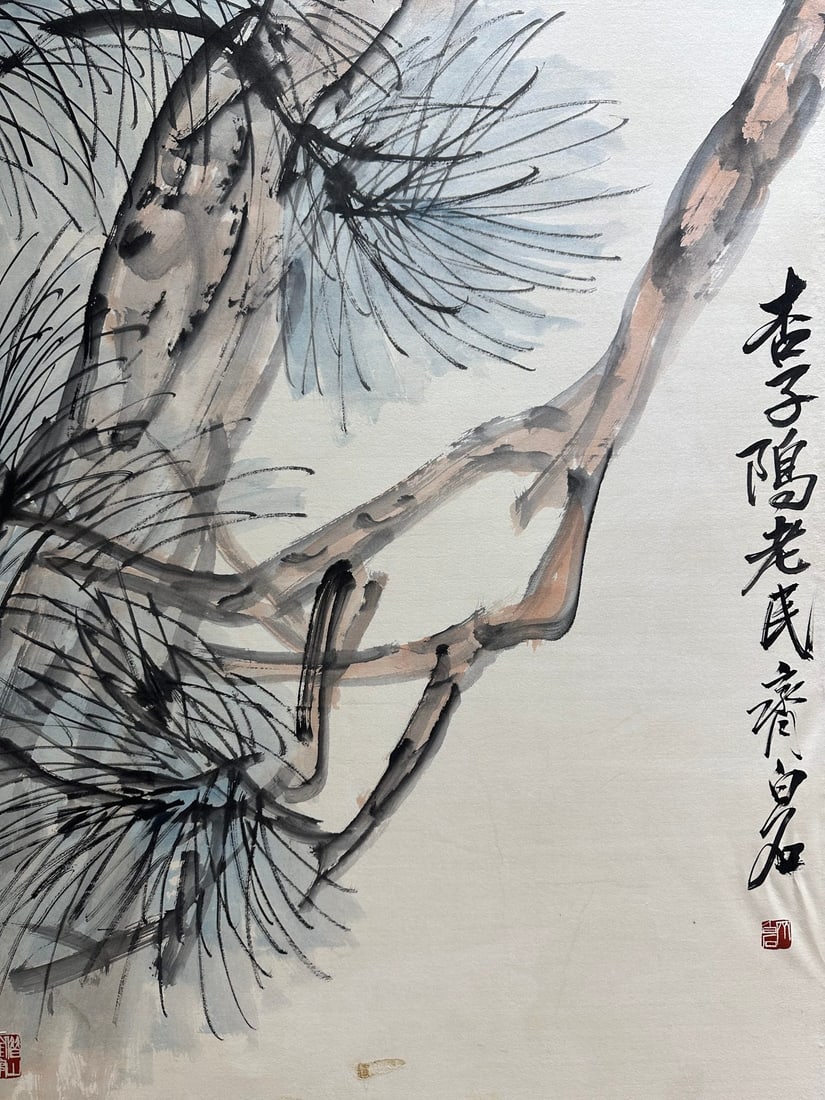 杏子隖老民齊白石